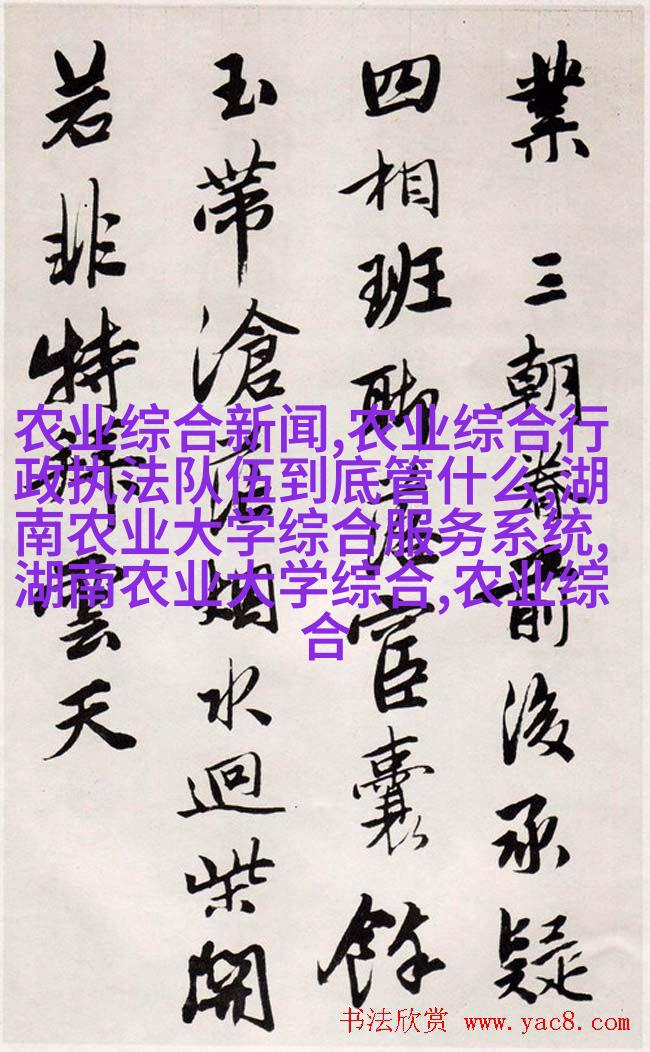 業 三朝眷前後承疑
四相班聯宦囊餘
玉帶滄烟水迴柴開
若非特雲天
农业综合新闻,农业综合行
政执法队伍到底管什么,湖
南农业大学综合服务系统,
湖南农业大学综合,农业综
合
书法欣赏 www.yac8.com